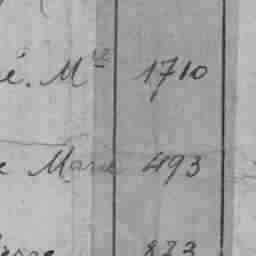 é. Mie 1710
e Marie 493
833